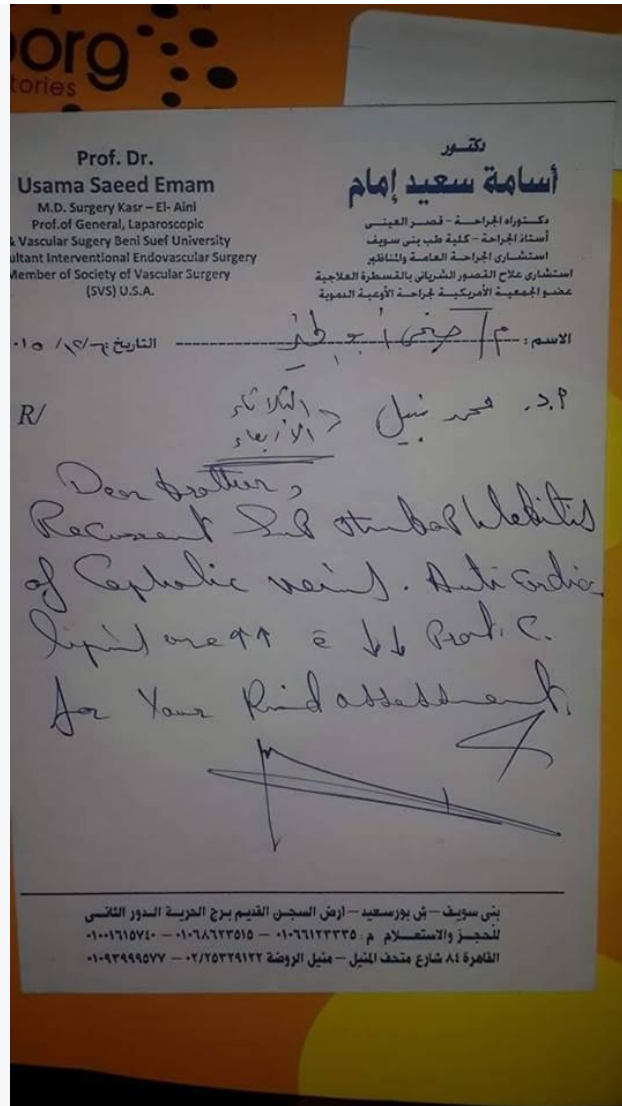 org
tories
Prof. Dr.
Usama Saeed Emam
M.D. Surgery Kasr – El- Aini
Prof.of General, Laparoscopic
& Vascular Sugery Beni Suef University
ultant Interventional Endovascular Surgery
Member of Society of Vascular Surgery
(SVS) U.S.A.
دكتور
أسامة سعيد إمام
دكتوراه الجراحة - قصر العينى
أستاذ الجراحة - كلية طب بنى سويف
استشارى الجراحة العامة والمناظير
استشارى علاج القصور الشريانى بالقسطرة العلاجية
عضو الجمعية الأمريكية لجراحة الأوعية الدموية
الاسم : م /
التاريخ: ٦ /١٢/ ٠١٥
R/
أ.د. محمد نبيل
الثلاثاء
الأربعاء
Dear brother,
Recurrent Sup thrombophlebitis
of Cephalic veins. Anti cardio
lipid are ↑↑ c̄ ↓↓ Prot. C.
for Your Kind assessment.
بنى سويف – ش بورسعيد – ارض السجن القديم برج الحرية الدور الثانى
للحجز والاستعلام م : ٠١٠٦٦١٢٣٣٣٥ – ٠١٠٦٨٦٢٣٥١٥ – ٠١٠٠١٦١٥٧٤٠
القاهرة ٨٤ شارع متحف المنيل – منيل الروضة ٠٢/٢٥٣٢٩١٢٢ – ٠١٠٩٣٩٩٩٥٧٧